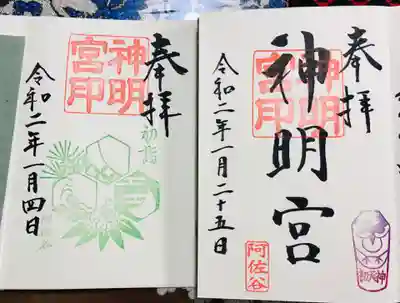 奉拝
初詣
神明
宮印
令和二年一月四日
奉拝
神明宮
神明
宮印
令和二年一月二十五日
阿佐谷